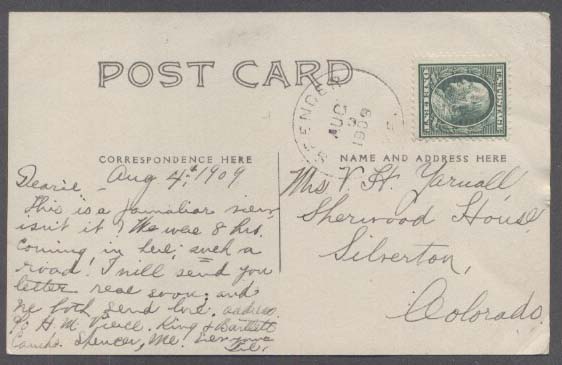 POST CARD
SPENCER
AUG
9
1909
ME.
U.S. POSTAGE
ONE CENT
CORRESPONDENCE HERE
NAME AND ADDRESS HERE
Dearie - Aug 4, 1909
This is a familiar view,
isn't it! We were 8 hrs.
coming in here; such a
road! I will send you
letter real soon; and
we both send love. address
% H M Pierce. King & Bartlett
Camps. Spencer, Me.
Mrs V. H. Yarnall,
Sherwood House,
Silverton,
Colorado.